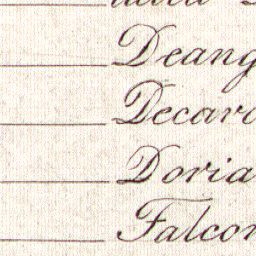 Deang
Decaro
Doria
Falcon